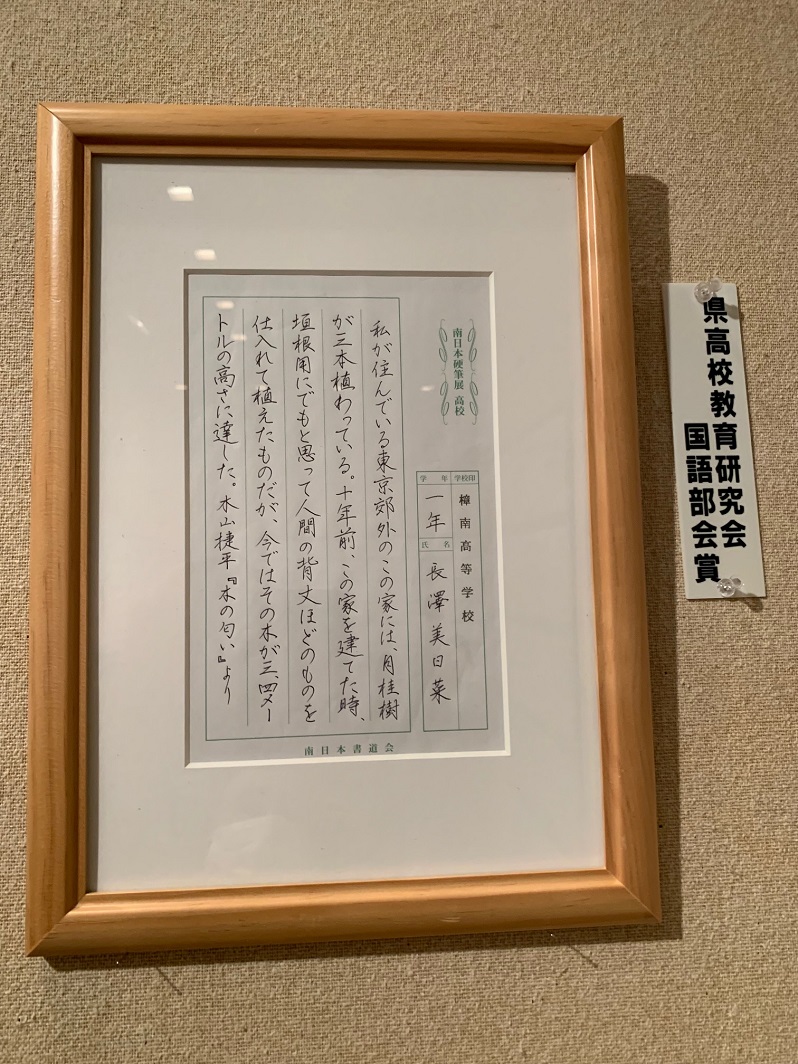 県高校教育研究会
国語部会賞
南日本硬筆展 高校
学校印
樟南高等学校
学年
一年
氏名
長澤美日菜
私が住んでいる東京郊外のこの家には、月桂樹
が三本植わっている。十年前、この家を建てた時、
垣根用にでもと思って人間の背丈ほどのものを
仕入れて植えたものだが、今ではその木が三、四メー
トルの高さに達した。木山捷平『木の匂い』より
南日本書道会